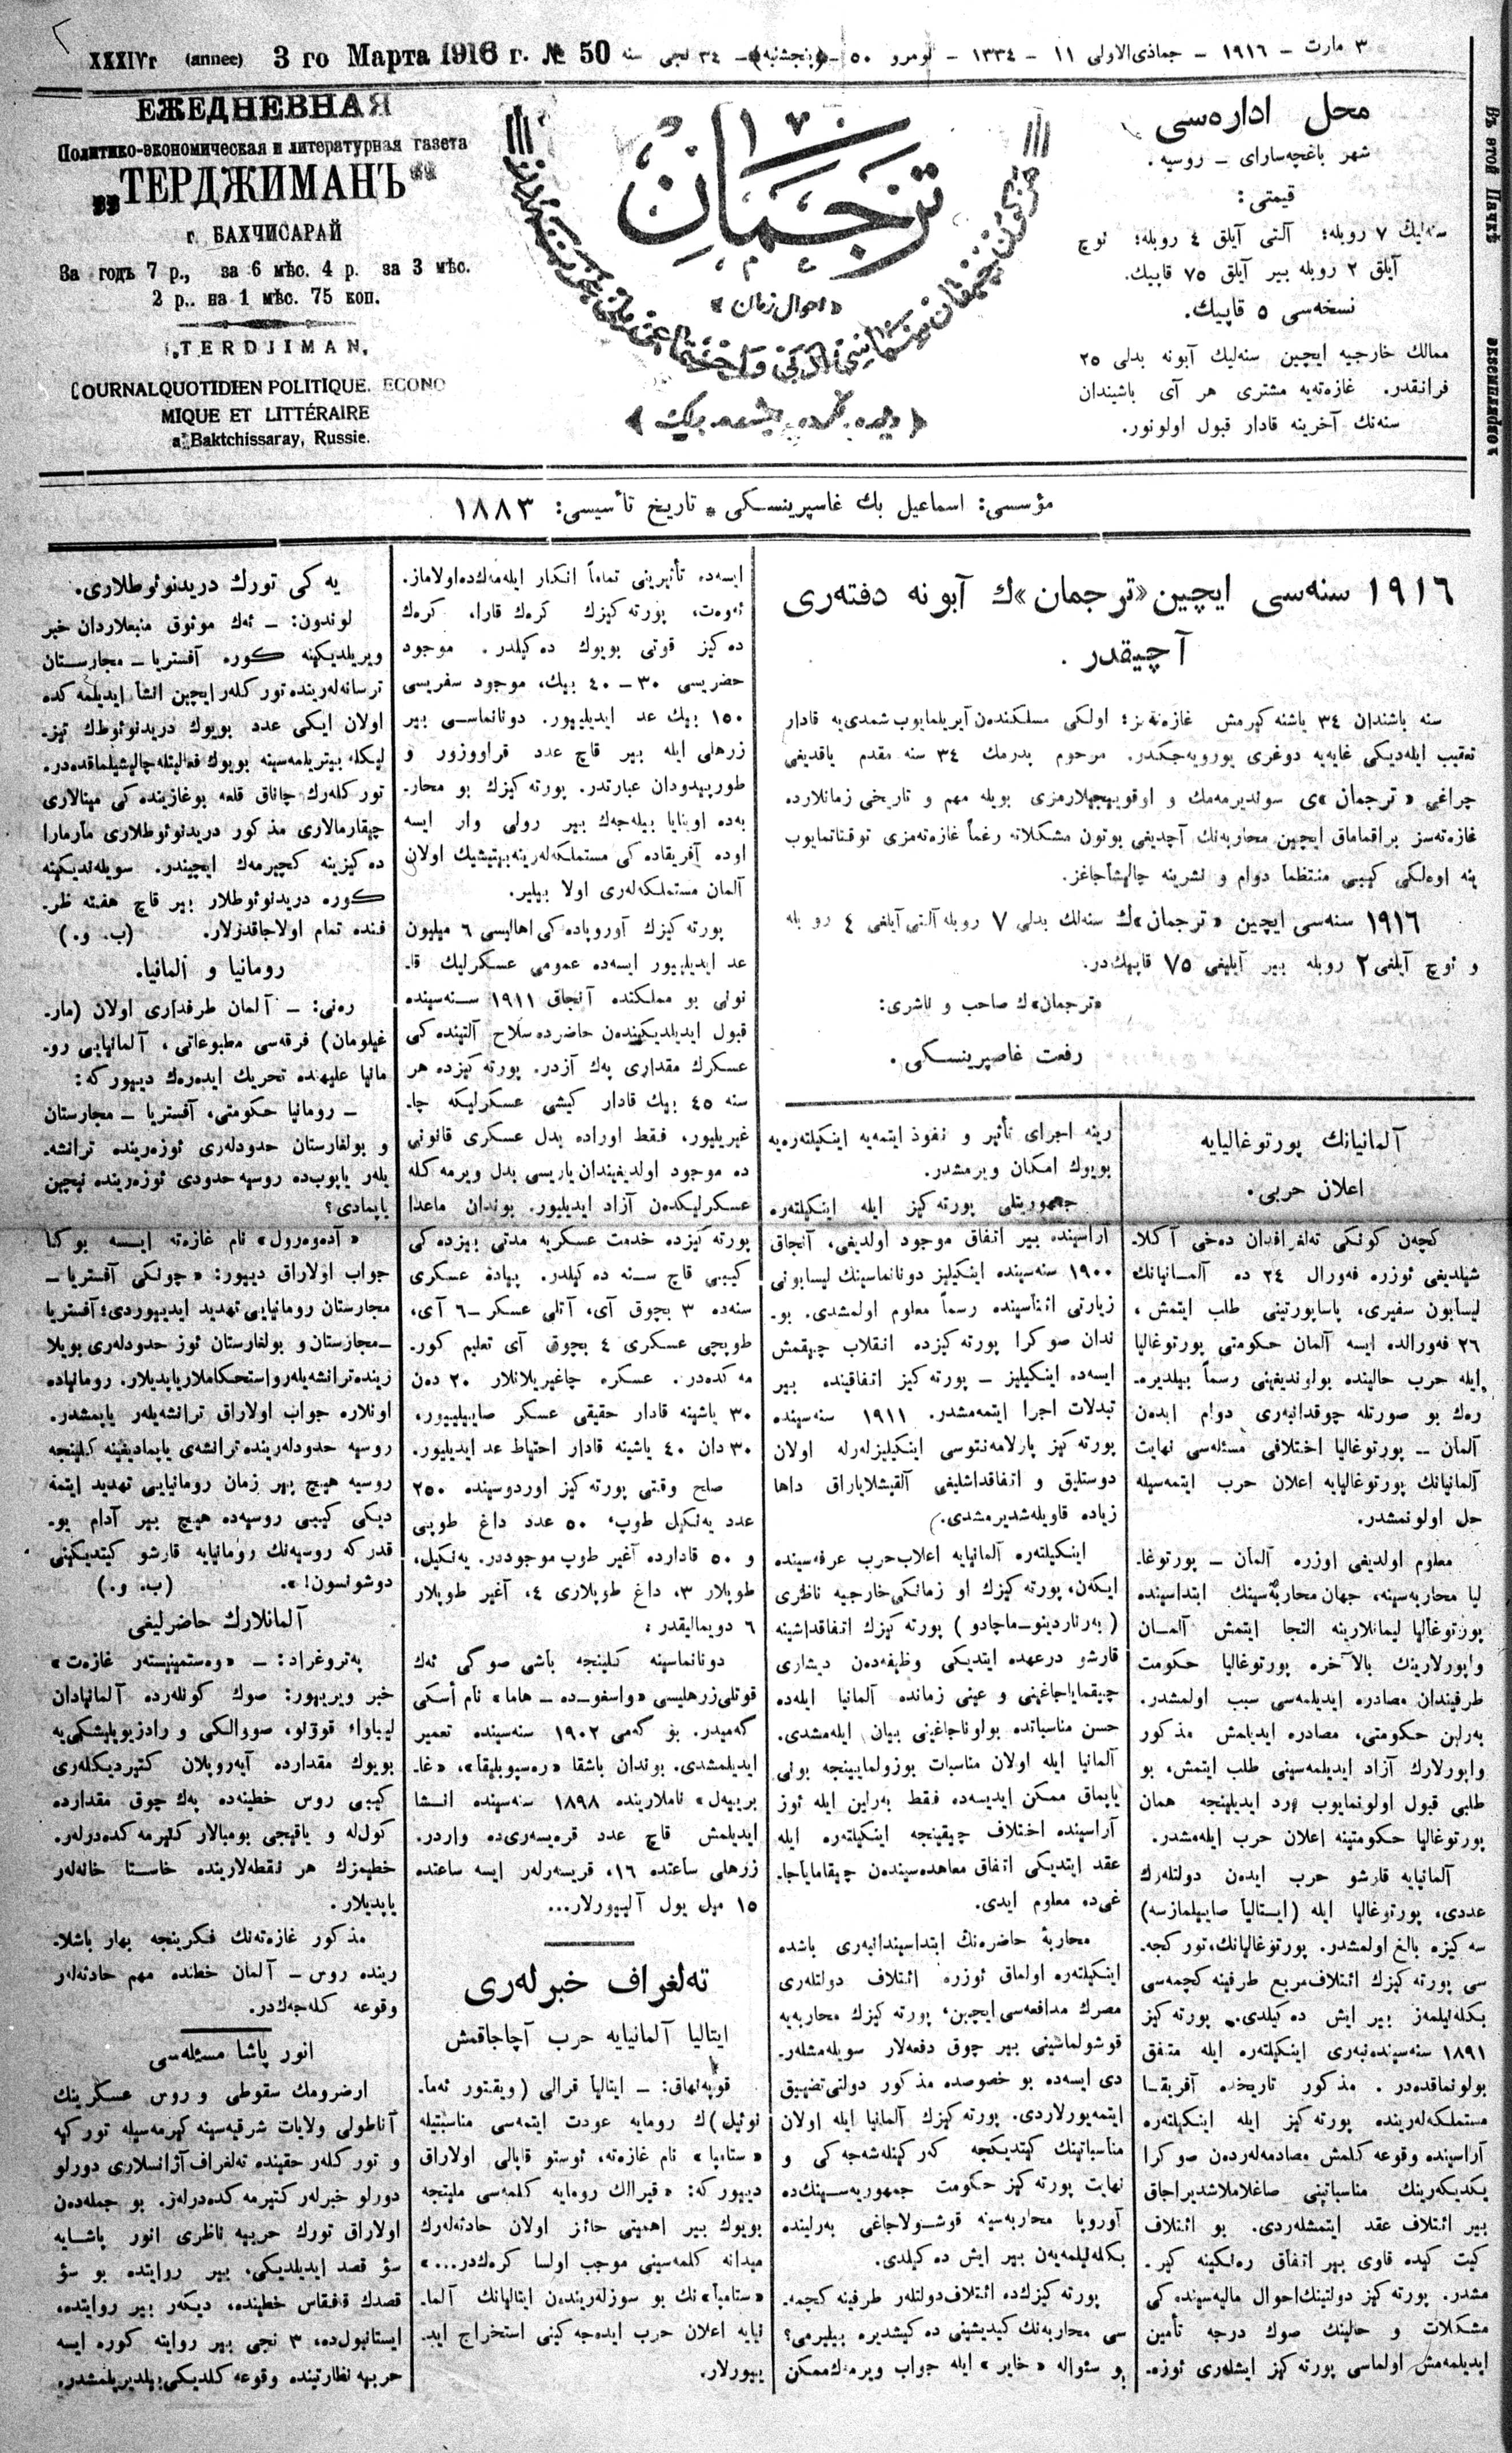 XXXIVг (annee) 3 го Марта 1916 г. № 50
٣ مارت – ١٩١٦ – جماذى‌الاولى ١١ – ١٣٣٤ – نومرو ٥٠ – (پنجشنبه) – ٣٤ نجى سنه
ЕЖЕДНЕВНАЯ
Политико-экономическая и литературная газета
„ТЕРДЖИМАНЪ“
г. БАХЧИСАРАЙ
За годъ 7 р., за 6 мѣс. 4 р. за 3 мѣс.
2 р.. на 1 мѣс. 75 коп.
TERDJIMAN,
JOURNAL QUOTIDIEN POLITIQUE. ECONO
MIQUE ET LITTÉRAIRE
a Baktchissaray, Russie.
ترجمان
«احوال زمان»
محل اداره‌سى
شهر باغچه‌ساراى – روسيه .
قيمتى:
سنه‌ليك ٧ روبله؛ آلتى آيلق ٤ روبله؛ ئوچ
آيلق ٢ روبله بير آيلق ٧٥ قاپيك.
نسخه‌سى ٥ قاپيك.
ممالك خارجيه ايچين سنه‌ليك آبونه بدلى ٢٥
فرانقدر. غازه‌ته‌يه مشترى هر آى باشيندان
سنه‌نك آخرينه قادار قبول اولونور.
مؤسسى: اسماعيل بك غاسپرينسكى * تاريخ تأسيسى: ١٨٨٣
١٩١٦ سنه‌سى ايچين «ترجمان»ك آبونه دفته‌رى
آچيقدر .
سنه باشندان ٣٤ ياشنه كيرمش غازه‌ته‌مز؛ اولكى مسلكندەن آيريلمايوب شمدى‌يه قادار
تعقيب ايله‌ديكى غايه‌يه دوغرى يورويه‌جكدر. مرحوم پدرمك ٣٤ سنه مقدم ياقديغى
چراغى «ترجمان»ى سونديرمه‌مك و اوقويېجيلارمزى بويله مهم و تاريخى زمانلارده
غازه‌ته‌سز براقماماق ايچين محاربه‌نك آچديغى بوتون مشكلاته رغماً غازه‌ته‌مزى توقتاتمايوب
ينه اوه‌لكى كيبى منتظماً دوام و نشرينه چاليشاجاغز.
١٩١٦ سنه‌سى ايچين «ترجمان»ك سنه‌لك بدلى ٧ روبله آلتى آيلغى ٤ روبله
و ئوچ آيلغى ٢ روبله بير آيليغى ٧٥ قاپيك‌در.
«ترجمان»ك صاحب و ناشرى:
رفعت غاصپرينسكى .
آلمانيانك پورتوغاليايه
اعلان حربى.
كچه‌ن كونكى ته‌لغرافدان ده‌خى آكلا–
شيلديغى ئوزره فه‌ورال ٢٤ ده آلمانيانك
ليسابون سفيرى، پاساپورتينى طلب ايتمش،
٢٦ فه‌ورالده ايسه آلمان حكومتى پورتوغاليا
ايله حرب حالينده بولونديغينى رسماً بيلديره–
رەك بو صورتله چوقدانبه‌رى دوام ايده‌ن
آلمان – پورتوغاليا اختلافى مسئله‌سى نهايت
آلمانيانك پورتوغاليايه اعلان حرب ايتمه‌سيله
حل اولونمشدر.
معلوم اولديغى اوزره آلمان – پورتوغا–
ليا محاربه‌سينه، جهان محاربه‌سينك ابتداسينده
پورتوغاليا ليمانلارينه التجا ايتمش آلمان
واپورلارينك بالآخره پورتوغاليا حكومت
طرفيندان مصادره ايديلمه‌سى سبب اولمشدر.
به‌رلين حكومتى، مصادره ايديلمش مذكور
واپورلارك آزاد ايديلمه‌سينى طلب ايتمش، بو
طلبى قبول اولونمايوب رد ايديلينجه همان
پورتوغاليا حكومتينه اعلان حرب ايله‌مشدر.
آلمانيايه قارشو حرب ايده‌ن دولتله‌رك
عددى، پورتوغاليا ايله (ايتاليا صاييلمازسه)
سه‌كيزه بالغ اولمشدر. پورتوغاليانك، توركجه–
سى پورته‌كيزك ائتلاف‌مربع طرفينه كچمه‌سى
بكله‌نيلمه‌ز بير ايش ده‌كيلدى. پورته‌كيز
١٨٩١ سنه‌سيندنبه‌رى اينكيلته‌ره ايله متفق
بولونماقده‌در . مذكور تاريخده آفريقا
مستملكه‌لرينده پورته‌كيز ايله اينكيلته‌ره
آراسينده وقوعه كلمش مصادمه‌له‌ردن صوكرا
يكديكه‌رينك مناسباتينى صاغلاملاشديراجاق
بير ائتلاف عقد ايتمشله‌ردى. بو ائتلاف
كيت كيده قاوى بير اتفاق ره‌نكينه كير–
مشدر. پورته‌كيز دولتينك احوال ماليه‌سينده‌كى
مشكلات و حالينك صوك درجه تأمين
ايديلمه‌مش اولماسى پورته‌كيز ايشله‌رى ئوزه–
رينه اجراى تأثير و نفوذ ايتمه‌يه اينكيلته‌ره‌يه
بويوك امكان ويرمشدر.
جمهوريتلى پورته‌كيز ايله اينكيلته‌ره
آراسينده بير اتفاق موجود اولديغى، آنجاق
١٩٠٠ سنه‌سينده اينكيليز دونانماسينك ليسابونى
زيارتى اثناسينده رسماً معلوم اولمشدى. بو–
ندان صوكرا پورته‌كيزده انقلاب چيقمش
ايسه‌ده اينكيليز – پورته‌كيز اتفاقينده بير
تبدلات اجرا ايتمه‌مشدر. ١٩١١ سنه‌سينده
پورته‌كيز پارلامه‌نتوسى اينكيليزله‌رله اولان
دوستليق و اتفاقداشليغى آلقيشلاياراق داها
زياده قاويله‌شديرمشدى.
اينكيلته‌ره آلمانيايه اعلان‌حرب عرفه‌سينده
ايكه‌ن، پورته‌كيزك او زمانكى خارجيه ناظرى
(به‌رناردينو–ماچادو) پورته‌كيزك اتفاقداشينه
قارشو درعهده ايتديكى وظيفه‌ده‌ن ديشارى
چيقماياجاغينى و عينى زمانده آلمانيا ايله‌ده
حسن مناسباتده بولوناجاغينى بيان ايله‌مشدى.
آلمانيا ايله اولان مناسبات بوزولمايينجه بونى
ياپماق ممكن ايديسه‌ده فقط به‌رلين ايله ئوز
آراسينده اختلاف چيقينجه اينكيلته‌ره ايله
عقد ايتديكى اتفاق معاهده‌سينده‌ن چيقاماياجا–
غى‌ده معلوم ايدى.
محاربۀ حاضره‌نك ابتداسيندانبه‌رى باشده
اينكيلته‌ره اولماق ئوزره ائتلاف دولتله‌رى
مصرك مدافعه‌سى ايچين، پورته‌كيزك محاربه‌يه
قوشولماشينى بير چوق دفعه‌لار سويله‌مشله‌ر–
دى ايسه‌ده بو خصوصده مذكور دولتى تضييق
ايتمه‌يورلاردى. پورته‌كيزك آلمانيا ايله اولان
مناسباتينك كيتديكجه كه‌ركينله‌شه‌جه‌كى و
نهايت پورته‌كيز حكومت جمهوريه‌سينك‌ده
آوروپا محاربه‌سينه قوشولاجاغى به‌رلينده
بكله‌نيلمه‌يه‌ن بير ايش ده‌كيلدى.
پورته‌كيزك‌ده ائتلاف‌دولتلەر طرفينه كچمه–
سى محاربه‌نك كيديشينى ده‌كيشديره بيليرمى؟
بو سئواله «خاير» ايله جواب ويرمك‌ممكن
ايسه‌ده تأثيرينى تماماً انكار ايله‌مه‌كده‌اولاماز.
ئه‌وه‌ت، پورته‌كيزك كره‌ك قارا، كره‌ك
ده‌كيز قوتى بويوك ده‌كيلدر. موجود
حضريسى ٣٠–٤٠ بيك، موجود سفريسى
١٥٠ بيك عد ايديلييور. دونانماسى بير
زرهلى ايله بير قاچ عدد قراووزور و
طورپيدودان عبارتدر. پورته‌كيزك بو محار–
به‌ده اوينايا بيله‌جه‌ك بير رولى وار ايسه
اوده آفريقاده‌كى مستملكه‌له‌رينه‌يتيشيك اولان
آلمان مستملكه‌له‌رى اولا بيلير.
پورته‌كيزك آوروپاده‌كى اهاليسى ٦ ميليون
عد ايديلييور ايسه‌ده عمومى عسكرليك قا–
نونى بو مملكتده آنجاق ١٩١١ سنه‌سينده
قبول ايديلديكينده‌ن حاضرده سلاح آلتينده‌كى
عسكرك مقدارى په‌ك آزدر. پورته‌كيزده هر
سنه ٤٥ بيك قادار كيشى عسكرليكه چا–
غيريلييور، فقط اوراده بدل عسكرى قانونى
ده موجود اولديغيندان ياريسى بدل ويرمه‌كله
عسكرليكده‌ن آزاد ايديلييور. بوندان ماعدا
پورته‌كيزده خدمت عسكريه مدتى بيزده‌كى
كيبى قاچ سنه ده‌كيلدر. پيادۀ عسكرى
سنه‌ده ٣ بچوق آى، آتلى عسكر–٦ آى،
طوپچى عسكرى ٤ بچوق آى تعليم كور–
مه‌كده‌در. عسكره چاغيريلانلار ٢٠ ده‌ن
٣٠ ياشينه قادار حقيقى عسكر صاييلييور،
٣٠ دان ٤٠ ياشينه قادار احتياط عد ايديلييور.
صلح وقتى پورته‌كيز اوردوسينده ٢٥٠
عدد يه‌نكيل طوپ، ٥٠ عدد داغ طوپى
و ٥٠ قادارده آغير طوپ موجوددر. يه‌نكيل،
طوپلار ٣، داغ طوپلارى ٤، آغير طوپلار
٦ دويماليقدر:
دونانماسينه كلينجه باشى صوكى ئه‌ك
قوتلى‌زرهليسى «واسقو–ده–هاما» نام أسكى
كه‌ميدر. بو كه‌مى ١٩٠٢ سنه‌سينده تعمير
ايديلمشدى. بوندان باشقا «ره‌سپوبليقا»، «غا–
بريپه‌ل» ناملارينده ١٨٩٨ سنه‌سينده انشا
ايديلمش قاچ عدد قره‌يسه‌رى‌ده واردر.
زرهلى ساعتده ١٦، قريسه‌رلەر ايسه ساعتده
١٥ ميل يول آلييورلار...
ته‌لغراف خبرله‌رى
ايتاليا آلمانيايه حرب آچاجاقمش
قوپه‌نهاق: – ايتاليا قرالى (ويقتور ئه‌ما–
نوئيل)ك رومايه عودت ايتمه‌سى مناسبتيله
«ستامپا» نام غازه‌ته، ئوستو قاپالى اولاراق
دييوركه: «قيرالك رومايه كلمه‌سى مليتجه
بويوك بير اهميتى حائز اولان حادثه‌له‌رك
ميدانه كلمه‌سينى موجب اولسا كره‌ك‌در...»
«ستامپا»نك بو سوزله‌رينده‌ن ايتاليانك آلما–
نيايه اعلان حرب ايده‌جه‌كينى استخراج ايد–
ييورلار.
يه‌كى تورك دريدنوئوطلارى.
لوندون: – ئه‌ك موثوق منبعلاردان خبر
ويريلديكينه كوره آفستريا – مجارستان
ترسانه‌له‌رينده توركلەر ايچين انشأ ايديلمه‌كده
اولان ايكى عدد بويوك دريدنوئوطك تيز–
ليكله بيتريلمه‌سينه بويوك فعاليتله‌چاليشيلماقده‌در.
توركلەرك چاناق قلعه بوغازينده‌كى مينالارى
چيقارمالارى مذكور دريدنوئوطلارى مارمارا
ده‌كيزينه كچيرمه‌ك ايچيندر. سويله‌نديكينه
كوره دريدنوئوطلار بير قاچ هفته ظر–
فنده تمام اولاجاقدرلار. (ب. و.)
رومانيا و آلمانيا.
ره‌نى: – آلمان طرفدارى اولان (مار–
غيلومان) فرقه‌سى مطبوعاتى، آلمانيايى رو–
مانيا عليهنده تحريك ايده‌ره‌ك دييوركه:
– رومانيا حكومتى، آفستريا – مجارستان
و بولغارستان حدودله‌رى ئوزه‌رينده ترانشه–
يلەر ياپوب‌ده روسيه حدودى ئوزه‌رينده نيچين
ياپمادى؟
«آده‌وه‌رول» نام غازه‌ته ايسه بوكا
جواب اولاراق دييور: «چونكى آفستريا –
مجارستان رومانيايى تهديد ايدييوردى؛ آفستريا
–مجارستان و بولغارستان ئوز حدودله‌رى بويلا
رينده‌ترانشه‌يله‌ر و استحكاملار ياپديلار. رومانياده
اونلاره جواب اولاراق ترانشه‌يله‌ر ياپمشدر.
روسيه حدودله‌رينده ترانشه‌ى ياپماديغينه كلينجه
روسيه هيچ بير زمان رومانيايى تهديد ايتمه
ديكى كيبى روسيه‌ده هيچ بير آدام يو–
قدركه روسيه‌نك رومانيايه قارشو كيتديكينى
دوشونسون!». (ب. و.)
آلمانلارك حاضرليغى
په‌تروغراد: – «وه‌ستمينسته‌ر غازه‌ت»
خبر ويرييور: صوك كونله‌رده آلمانيادان
ليباوا، قوونو، صووالكى و رادزيويليشكى‌يه
بويوك مقدارده آيه‌روپلان كتيرديكله‌رى
كيبى روس خطينه‌ده په‌ك چوق مقدارده
كول‌له و ياقيجى بومبالار كتيرمه‌كده‌درله‌ر.
خطيمزك هر نقطه‌لارينده خاستا خانه‌لەر
ياپديلار.
مذكور غازه‌ته‌نك فكرينجه بهار باشلا–
رينده روس – آلمان خطنده مهم حادثه‌له‌ر
وقوعه كله‌جه‌ك‌در.
انور پاشا مسئله‌سى
ارضرومك سقوطى و روس عسكرينك
آناطولى ولايات شرقيه‌سينه كيرمه‌سيله توركيه
و توركلەر حقينده ته‌لغراف آژانسلارى دورلو
دورلو خبرله‌ر كتيرمه‌كده‌درله‌ر. بو جمله‌ده‌ن
اولاراق تورك حربيه ناظرى انور پاشايه
سؤ قصد ايديلديكى، بير روايتده بو سؤ
قصدك قفقاس خطينده، ديكه‌ر بير روايتده،
ايستانبول‌ده، ٣ نجى بير روايته كوره ايسه
حربيه نظارتينده وقوعه كلديكى بيلديريلمشدر.